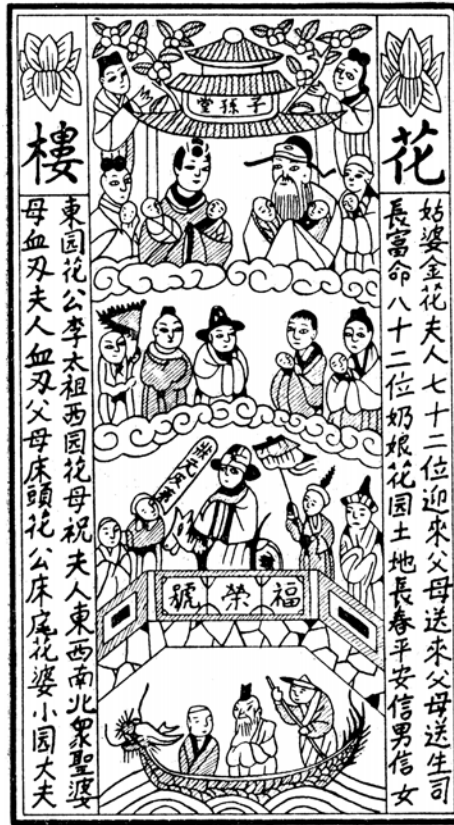 花
樓
姑婆金花夫人七十二位迎來父母送來父母送生司
長富命八十二位奶娘花园土地長春平安信男信女
子孫堂
狀元及第
福榮號
東园花公李太祖西园花母祝夫人東西南北衆聖婆
母血刃夫人血刃父母床頭花公床尾花婆小园大夫